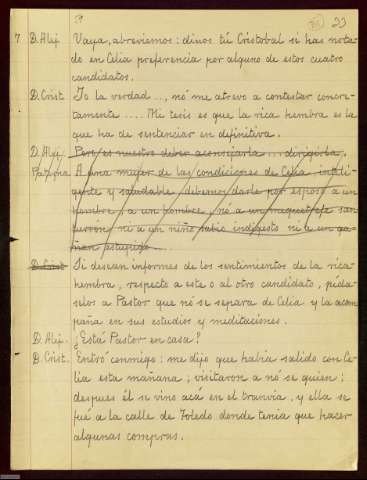 P 23
7 D. Alej. Vaya, abreviemos: dinos tú Cristobal si has nota-
do en Celia preferencia por alguno de estos cuatro
candidatos.
D. Crist. Yo la verdad..., nó me atrevo a contestar concre-
tamente .... Mi tesis es que la rica hembra es la
que ha de sentenciar en definitiva.
D. Alej. Pero es nuestro deber aconsejarla... dirigirla,
A una mujer de las condiciones de Celia inteli-
gente y saludable debemos darle por esposo a un
hombre, a un hombre, nó a un mequetrefe san-
ni a un niño sabio indigesto ni a un ga-
ñan estupido...
D. Crist. Si desean informes de los sentimientos de la rica-
hembra, respecto a este o al otro candidato, pida-
selos a Pastor que nó se separa de Celia y la acom-
paña en sus estudios y meditaciones.
D. Alej. ¿Está Pastor en casa?
D. Crist. Entró conmigo: me dijo que habia salido con Ce-
lia esta mañana; visitaron a nó se quien;
despues él se vino acá en el tranvia, y ella se
fué a la calle de Toledo donde tenia que hacer
algunas compras.